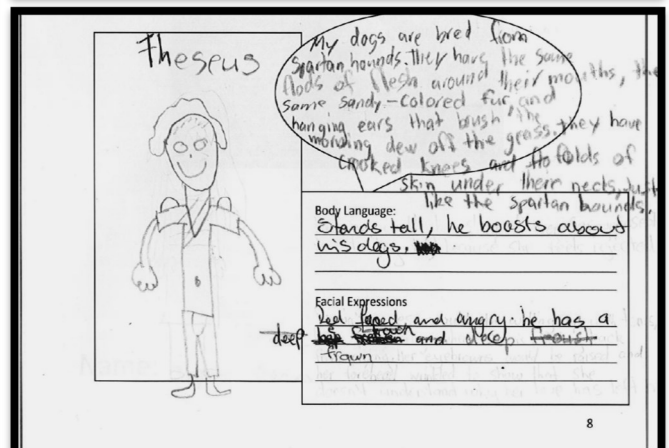 Theseus
My dogs are bred from
spartan hounds. They have the same
flods of flesh around their mouths, the
same sandy-colored fur, and
hanging ears that brush the
morning dew off the grass. they have
crooked knees and folds of
skin under their necks, Just
like the spartan hounds.
Body Language:
Stands tall, he boasts about
his dogs.
Facial Expressions
Red faced and angry. he has a
deep frown and deep
frown
8